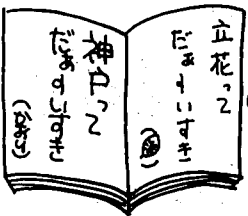 立花って
だぁーいすき
神戸って
だぁーいすき
(かおり)